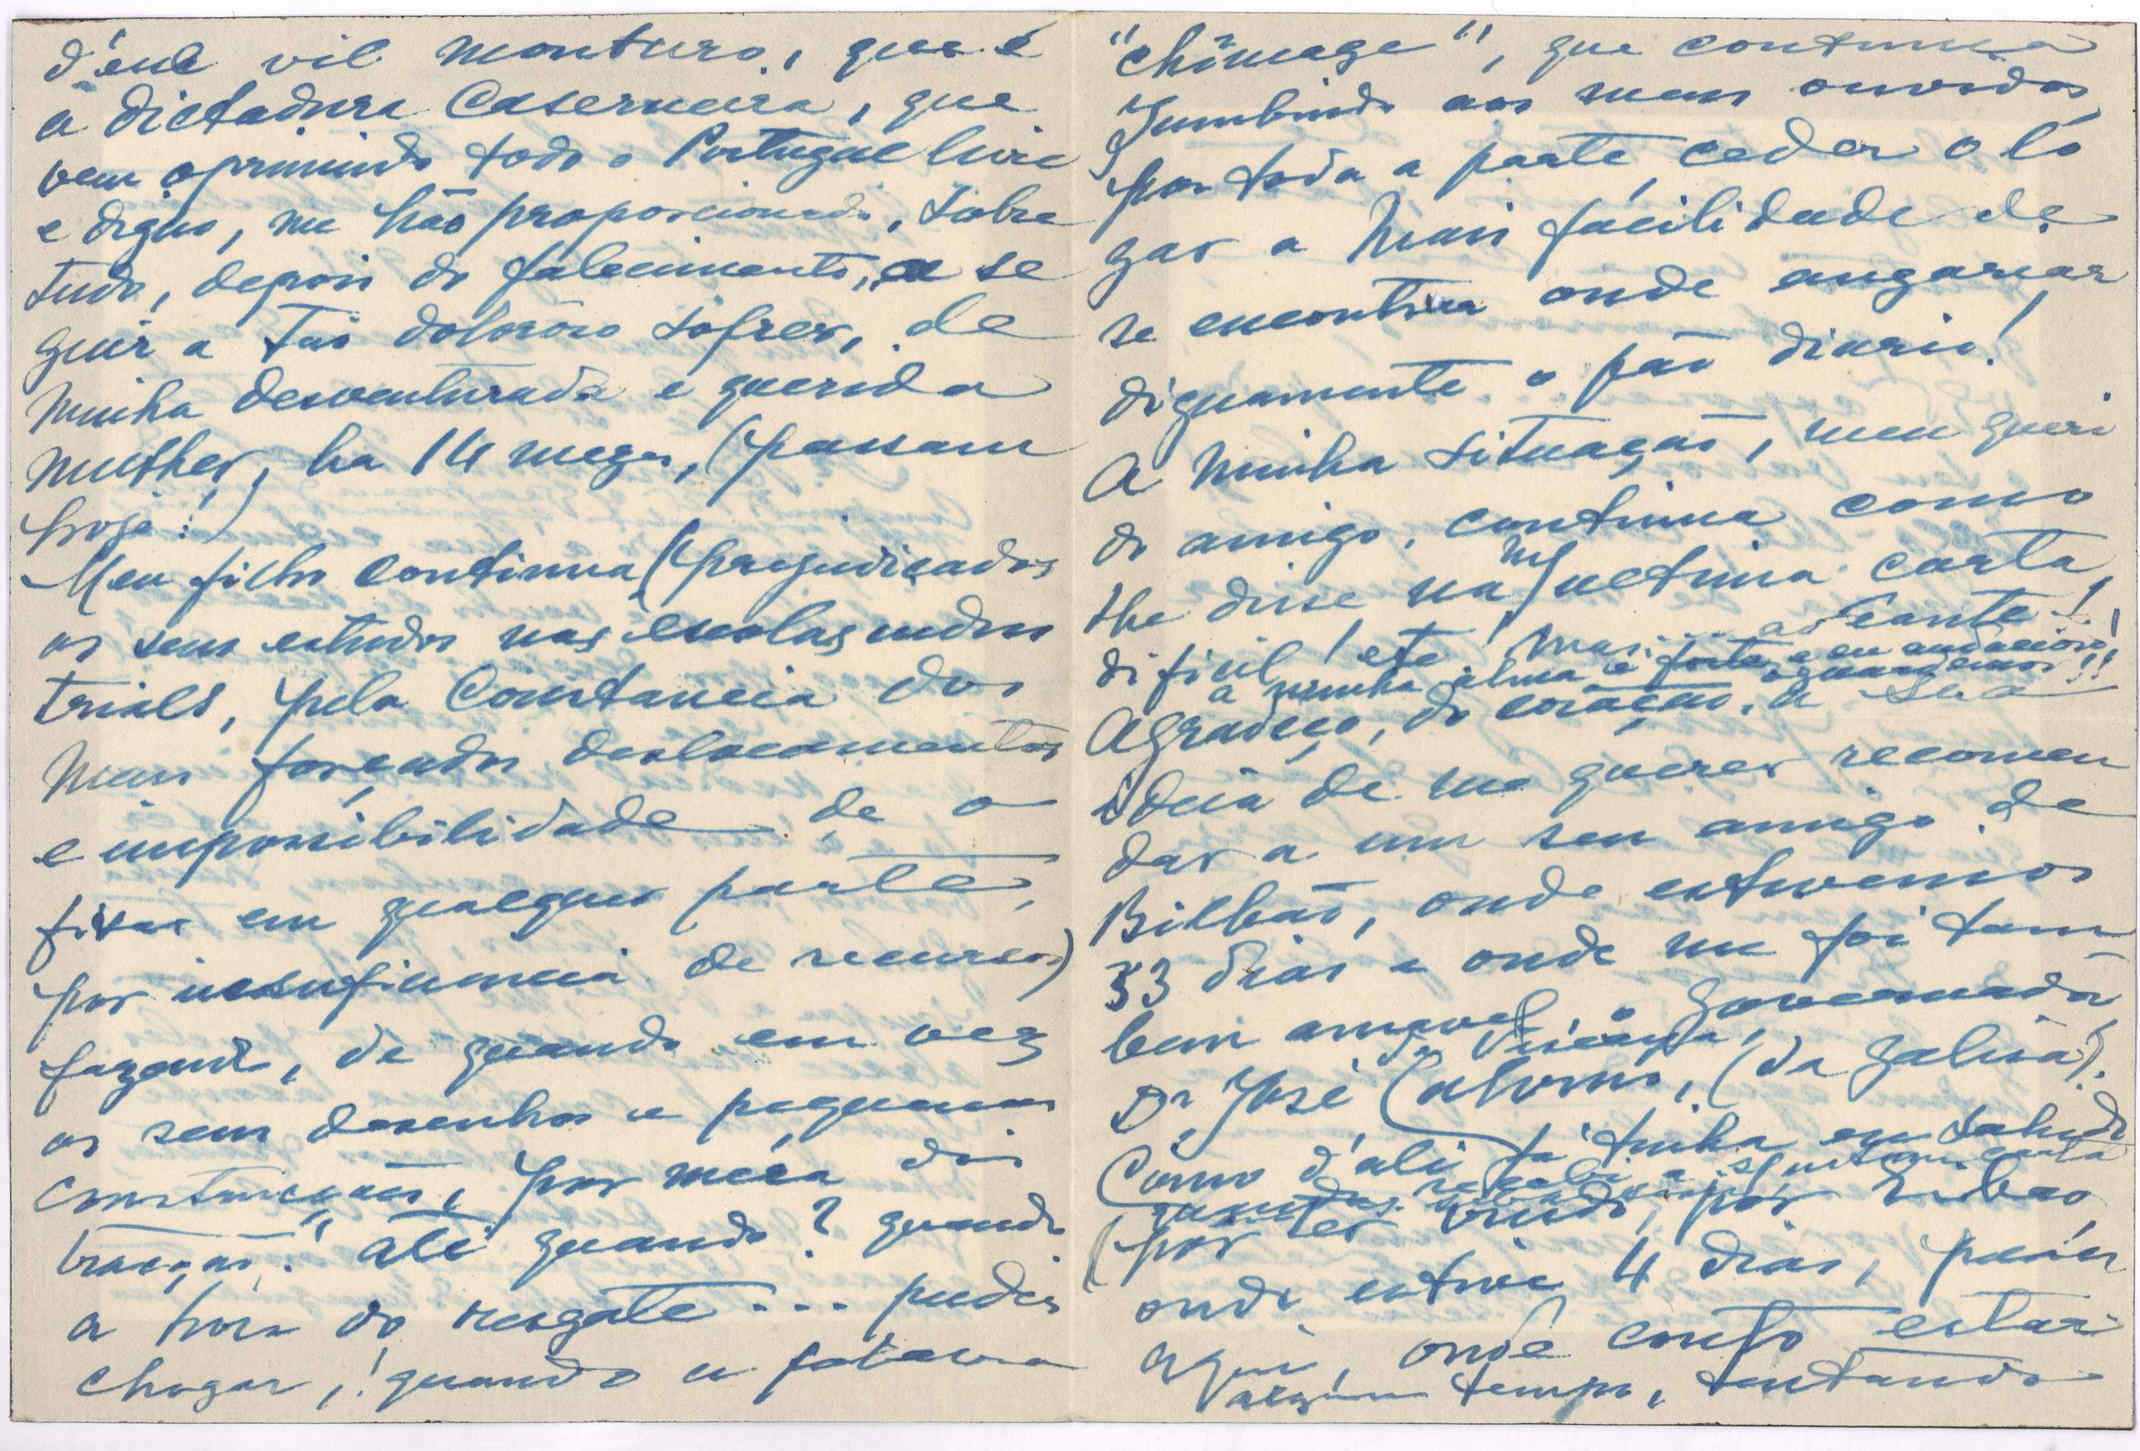 d'ente vil monturo, que é
a dictadura Caserneira, que
vem oprimindo todo o Portugal livre
e digno, me hão proporcionado, sobre
tudo, depois do falecimento, a se
guir a tão doloroso sofrer, de
minha desventurada e querida
mulher, ha 14 mezes, (passam
hoje!)
Meu filho continua (prejudicados
os seus estudos nas escolas indus
triaes, pela Constancia dos
meus forçados deslocamentos
e impossibilidade de o
fixar em qualquer parte,
por insuficiencia de recursos)
fazendo, de quando em vez
os seus desenhos e pequenas
construcções, por méra dis
tracção." Até quando? quando
a hora do resgate... puder
chegar,! quando a palavra
"chômage", que continua
zumbindo aos meus ouvidos,
por toda a parte, ceder o lo
gar a mais facilidade de
se encontrar onde angariar
dignamente o pão diario!
A minha situação, meu queri
do amigo, continua como
lhe disse na mª ultima carta,
dificil! etc mas... adeante!
a minha alma é forte, e eu audacioso!
aguardemos!!
Agradeço, do coração, a sua
ideia de me querer recomen
dar a um seu amigo de
Bilbao, onde estivemos
33 dias e onde me foi tam
bem amavel, o Governador,
Dr José Calvino, (da Galiza).
Como d'ali já tinha eu sahido
quando recebi a sua carta
(por ter vindo, por Bilbao,
onde estive 4 dias, para
aqui, onde conto estar
algum tempo, tentando